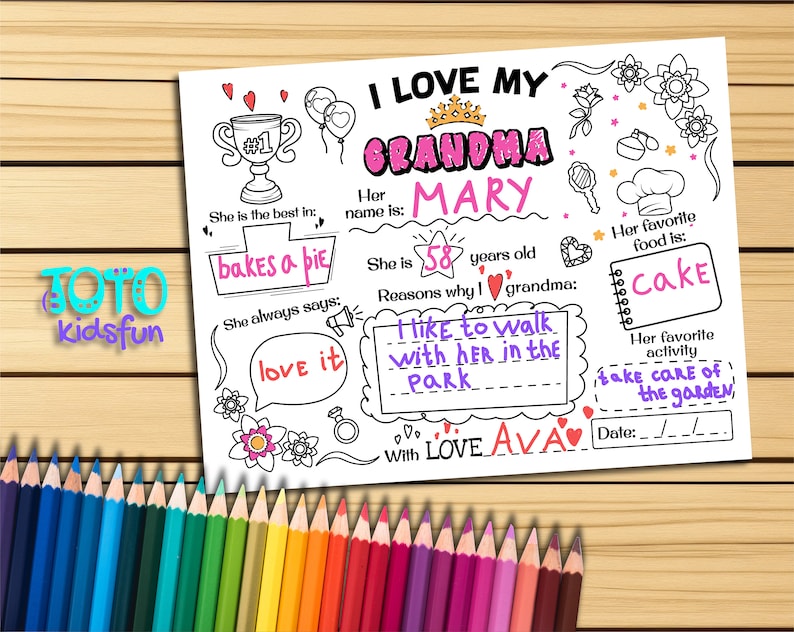 I LOVE MY
GRANDMA
#1
Her
name is: MARY
She is the best in:
bakes a pie
She is 58 years old
Her favorite
food is:
CAKE
Reasons why I grandma:
I like to walk
with HER in the
PARK
She always says:
love it
Her favorite
activity
take care of
the garden
Date: _ / _ / _ .
With LOVE AVA
TOTO
kidsfun